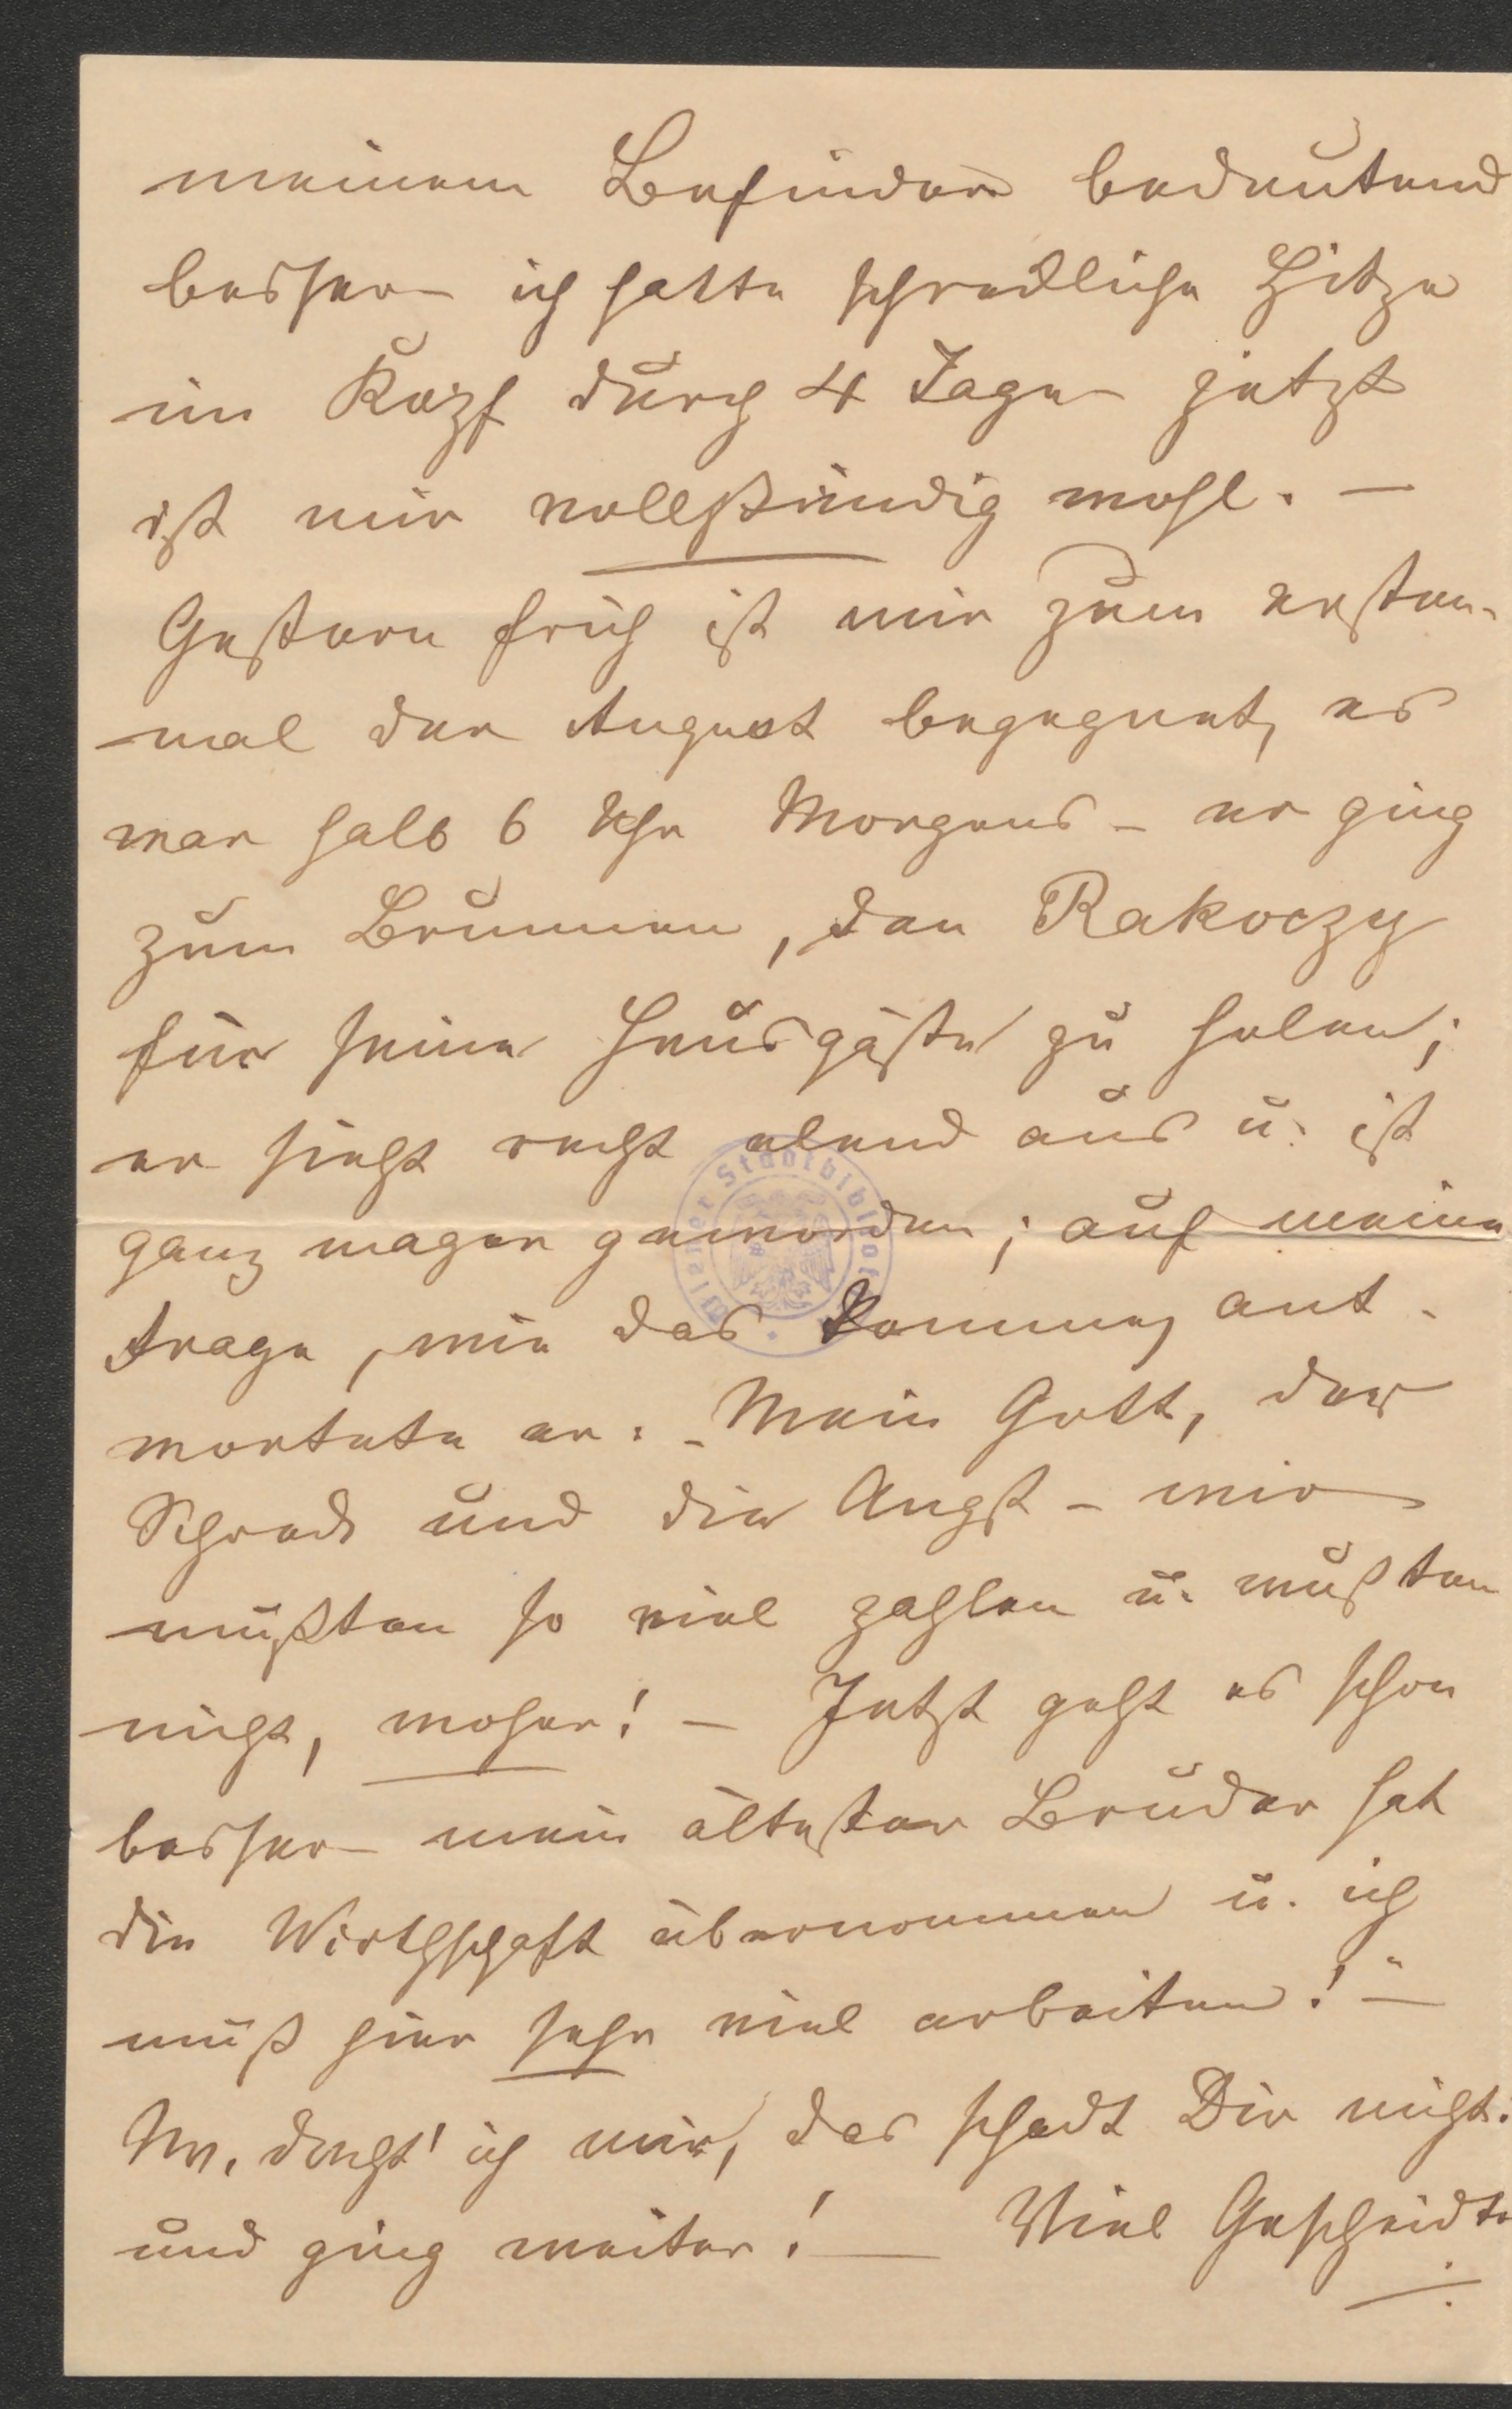 meinem Befinden bedeutend
besser – ich hatte schreckliche Hitze
im Kopf durch 4 Tage – jetzt
ist mir vollständig wohl. –
Gestern früh ist mir zum ersten-
mal der August begegnet, es
war halb 6 Uhr Morgens – er ging
zum Brunnen, den Rakoczy
für seine Hausgäste zu holen;
er sieht recht elend aus u. ist
ganz mager geworden; auf meine
Frage, wie das komme, ant-
wortete er: „Mein Gott, der
Schreck und die Angst – wir
mußten so viel zahlen u. wußten
nicht, woher! – Jetzt geht es schon
besser – mein ältester Bruder hat
die Wirthschaft übernommen u. ich
muß hier sehr viel arbeiten!" –
Nu, dacht' ich mir, das schadt Dir nicht.
und ging weiter! – Viel Gescheidte
Wiener Stadtbibliothek